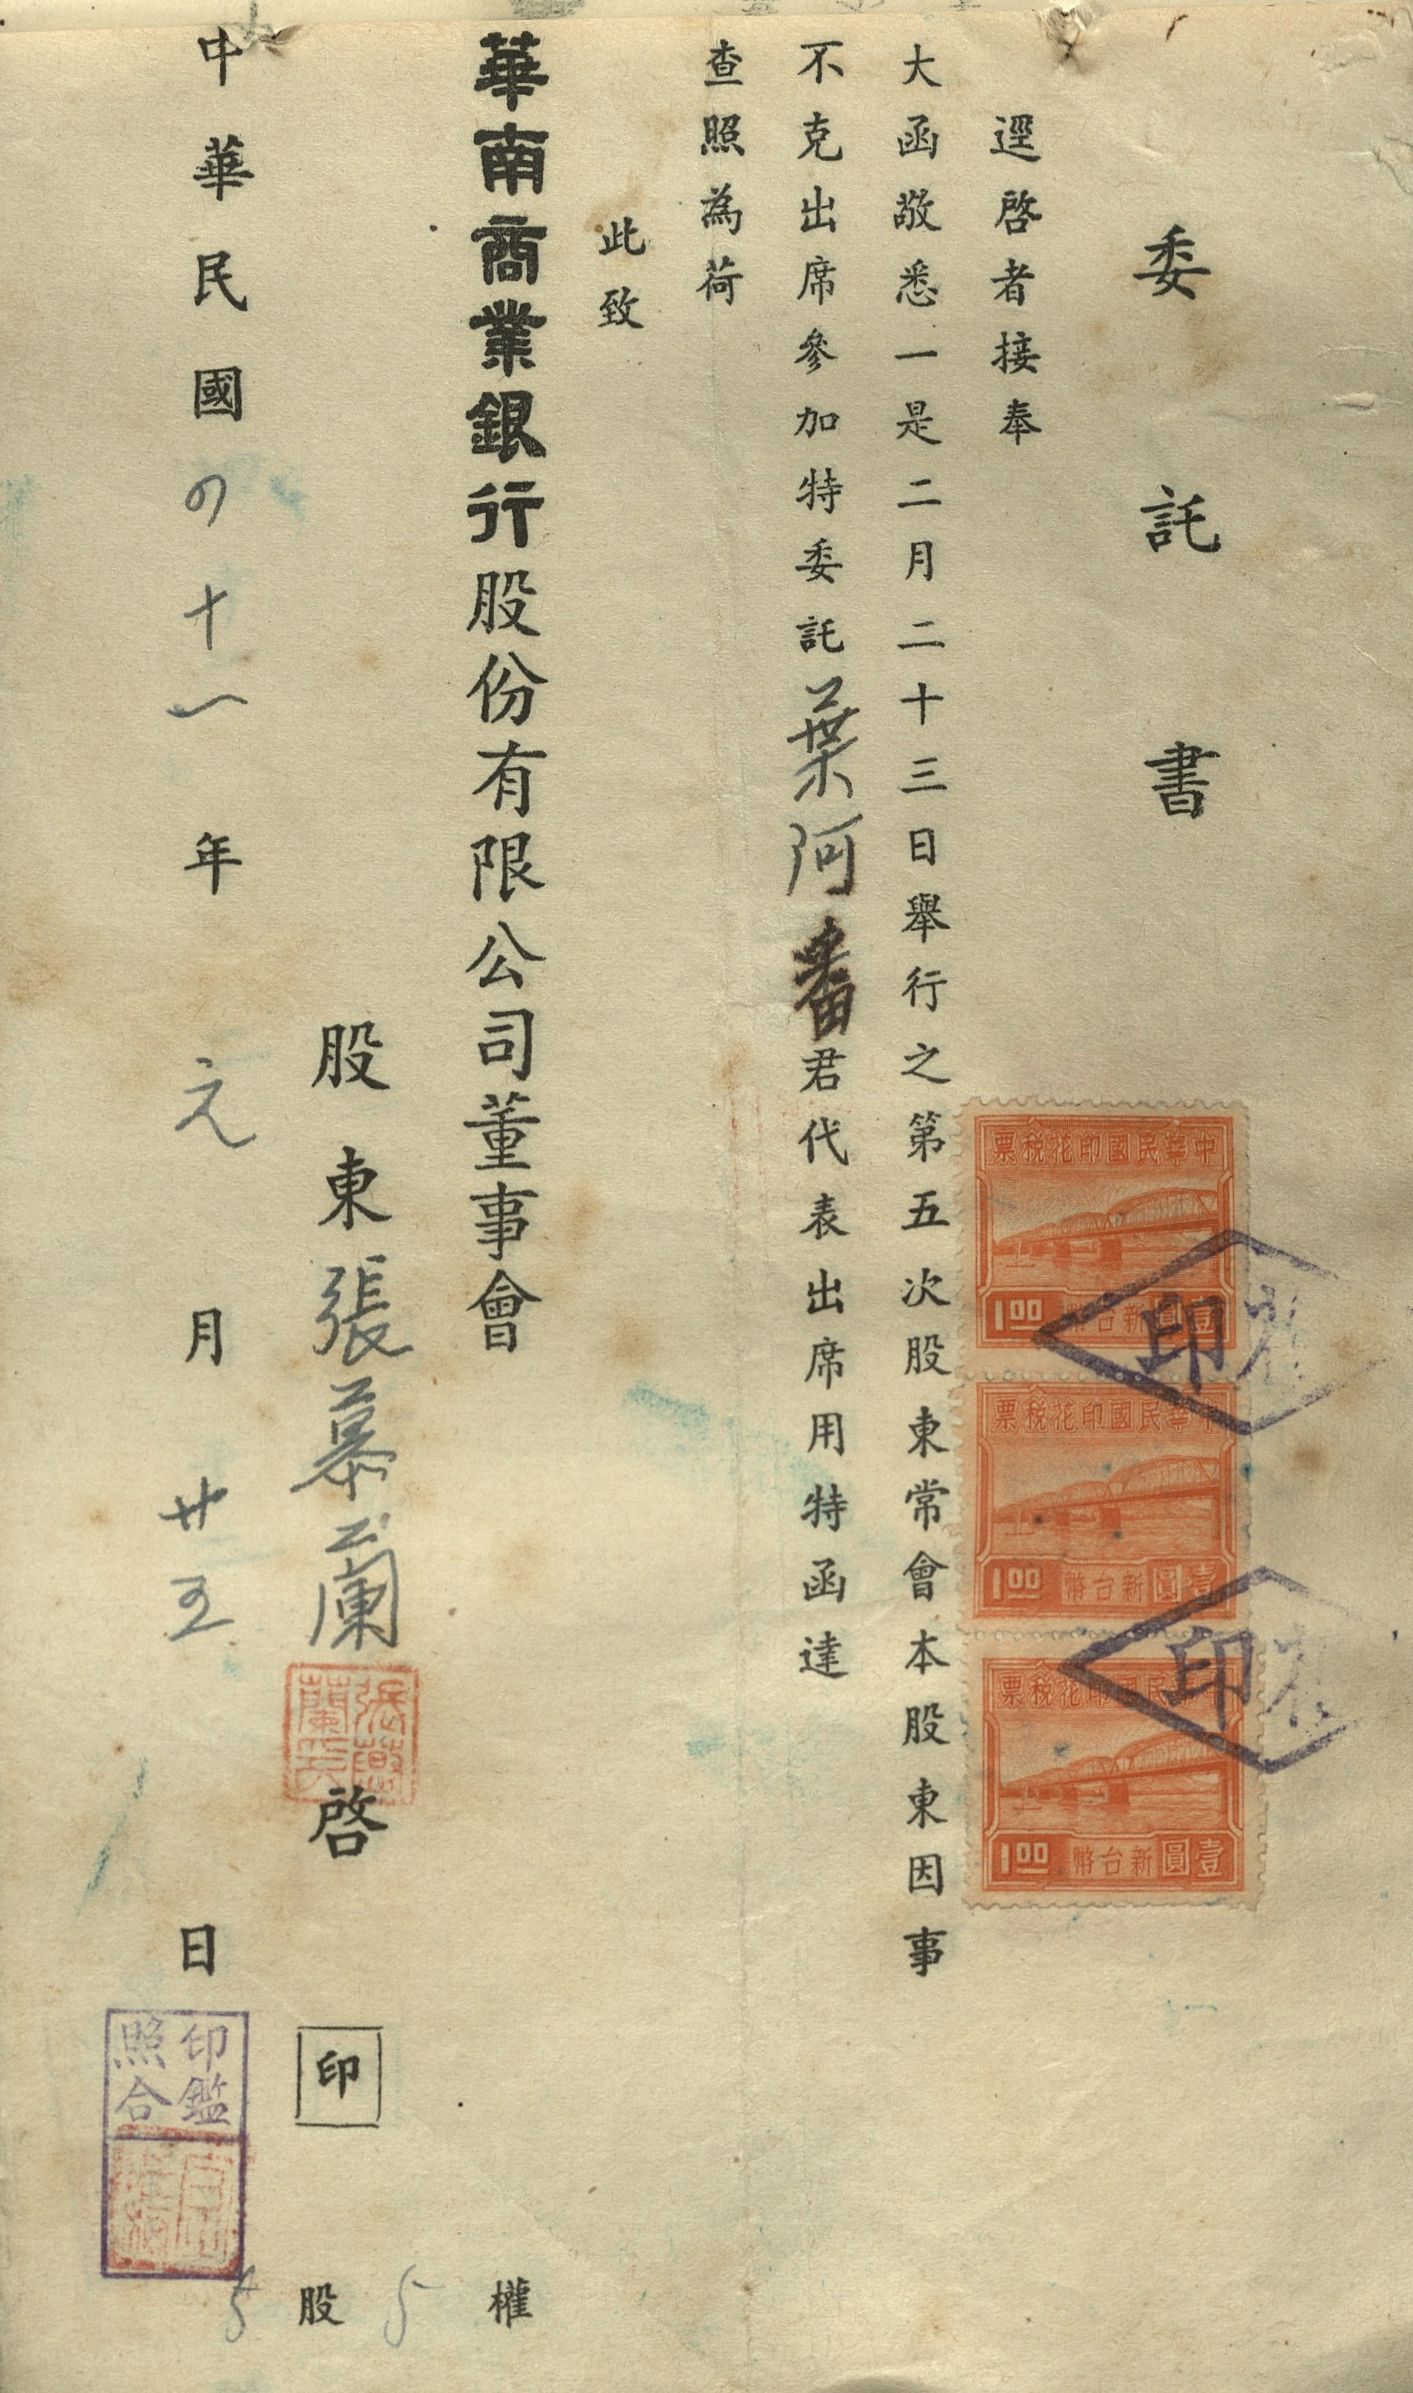 委託書
逕啓者接奉
大函敬悉一是二月二十三日舉行之第五次股東常會本股東因事
不克出席參加特委託葉阿番君代表出席用特函達
查照為荷
此致
華南商業銀行股份有限公司董事會
股東張慕蘭啓 印
中華民國四十一年元月廿五日
5股 5權
中華民國印花税票
1.00 新台幣壹圓
中華民國印花税票
1.00 新台幣壹圓
中華民國印花税票
1.00 新台幣壹圓
印
印
印鑑
照合